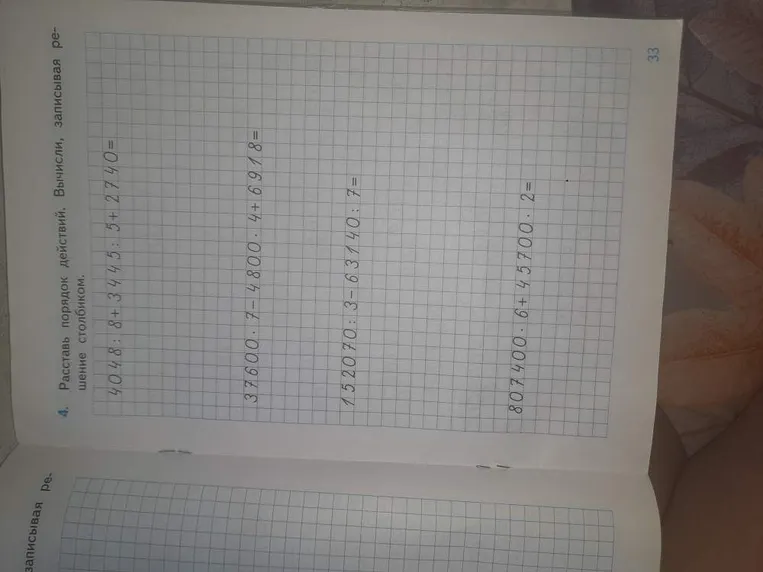 4. Расставь порядок действий. Вычисли, записывая ре-
шение столбиком.
4048:8+3445:5+2740=
37600·7-4800·4+6918=
152070:3-63140:7=
807400·6+45700·2=
33
записывая ре-